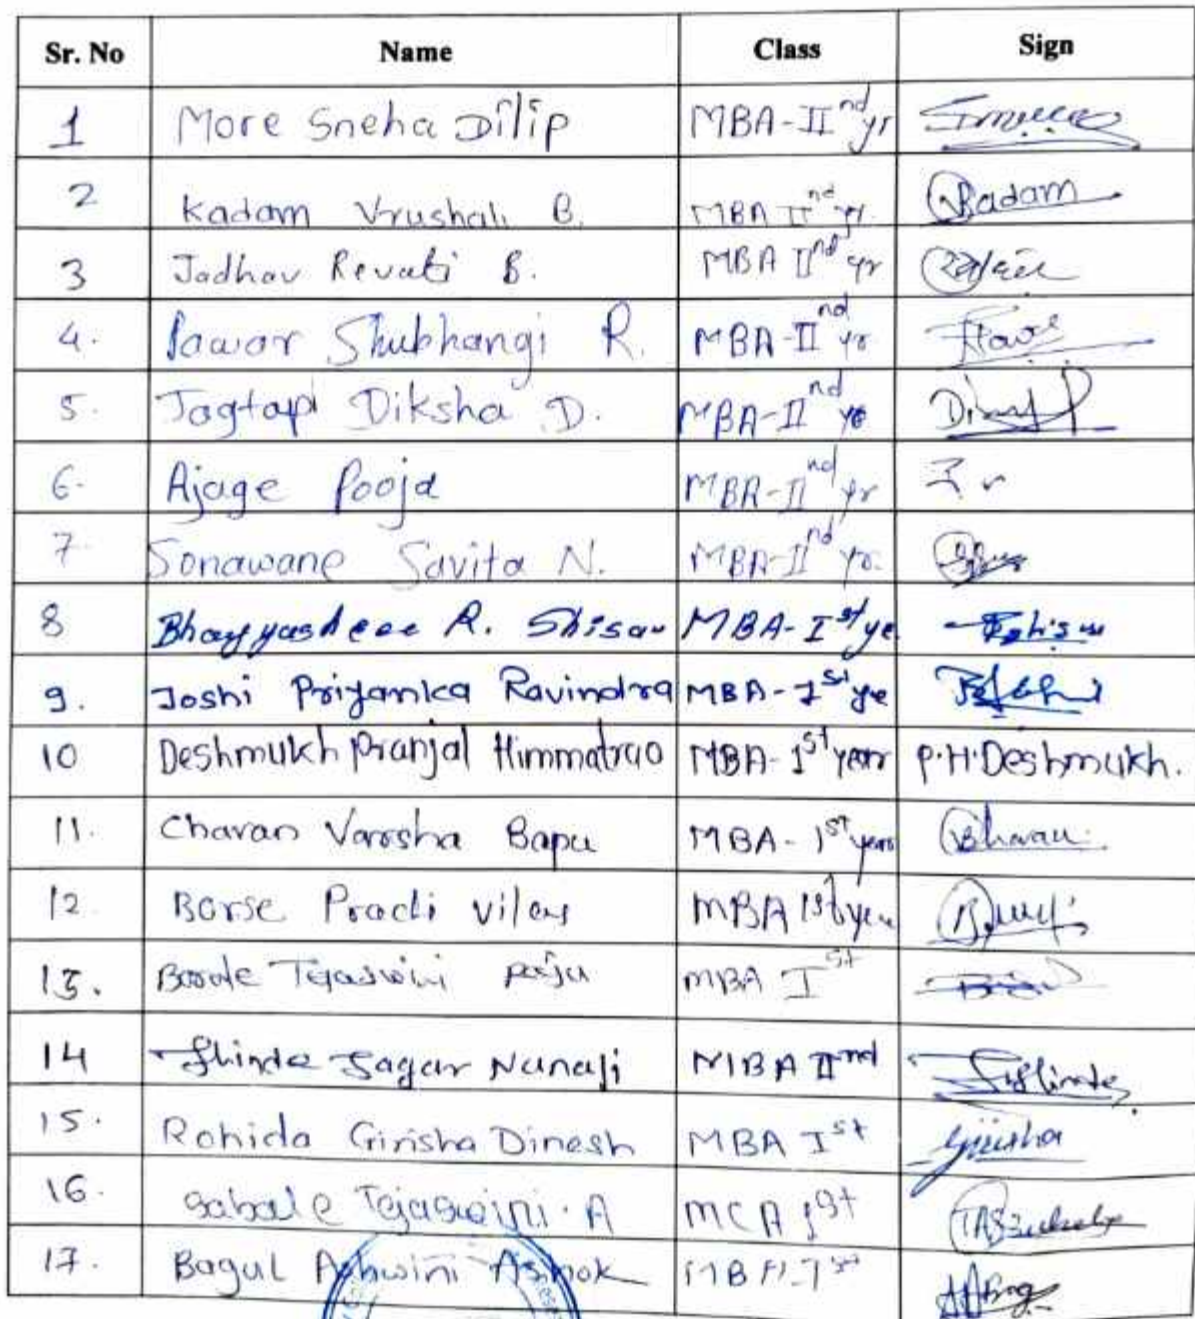 Sr. No Name Class Sign
1 More Sneha Dilip MBA-II nd yr
2 Kadam Vrushali B. MBA II nd yr. Kadam
3 Jadhav Revati B. MBA II nd yr
4. Pawar Shubhangi R. MBA-II nd yr
5. Jagtap Diksha D. MBA-II nd ye
6. Ajage Pooja MBA-II nd yr
7. Sonawane Savita N. MBA-II nd yr.
8 R. MBA-I st ye
9. Joshi Priyanka Ravindra MBA-I st ye
10 Deshmukh Pranjal Himmatrao MBA-1st year P.H.Deshmukh.
11. Chavan Varsha Bapu MBA-1st year
12. Borse Vilas MBA 1st year
13. Tejaswini MBA I st
14 Shinde Sagar Nanaji MBA II nd
15. Rohida Girisha Dinesh MBA I st Girisha
16. Sabale Tejaswini. A MCA 1st
17. Bagul Ashwini Ashok MBA-I st